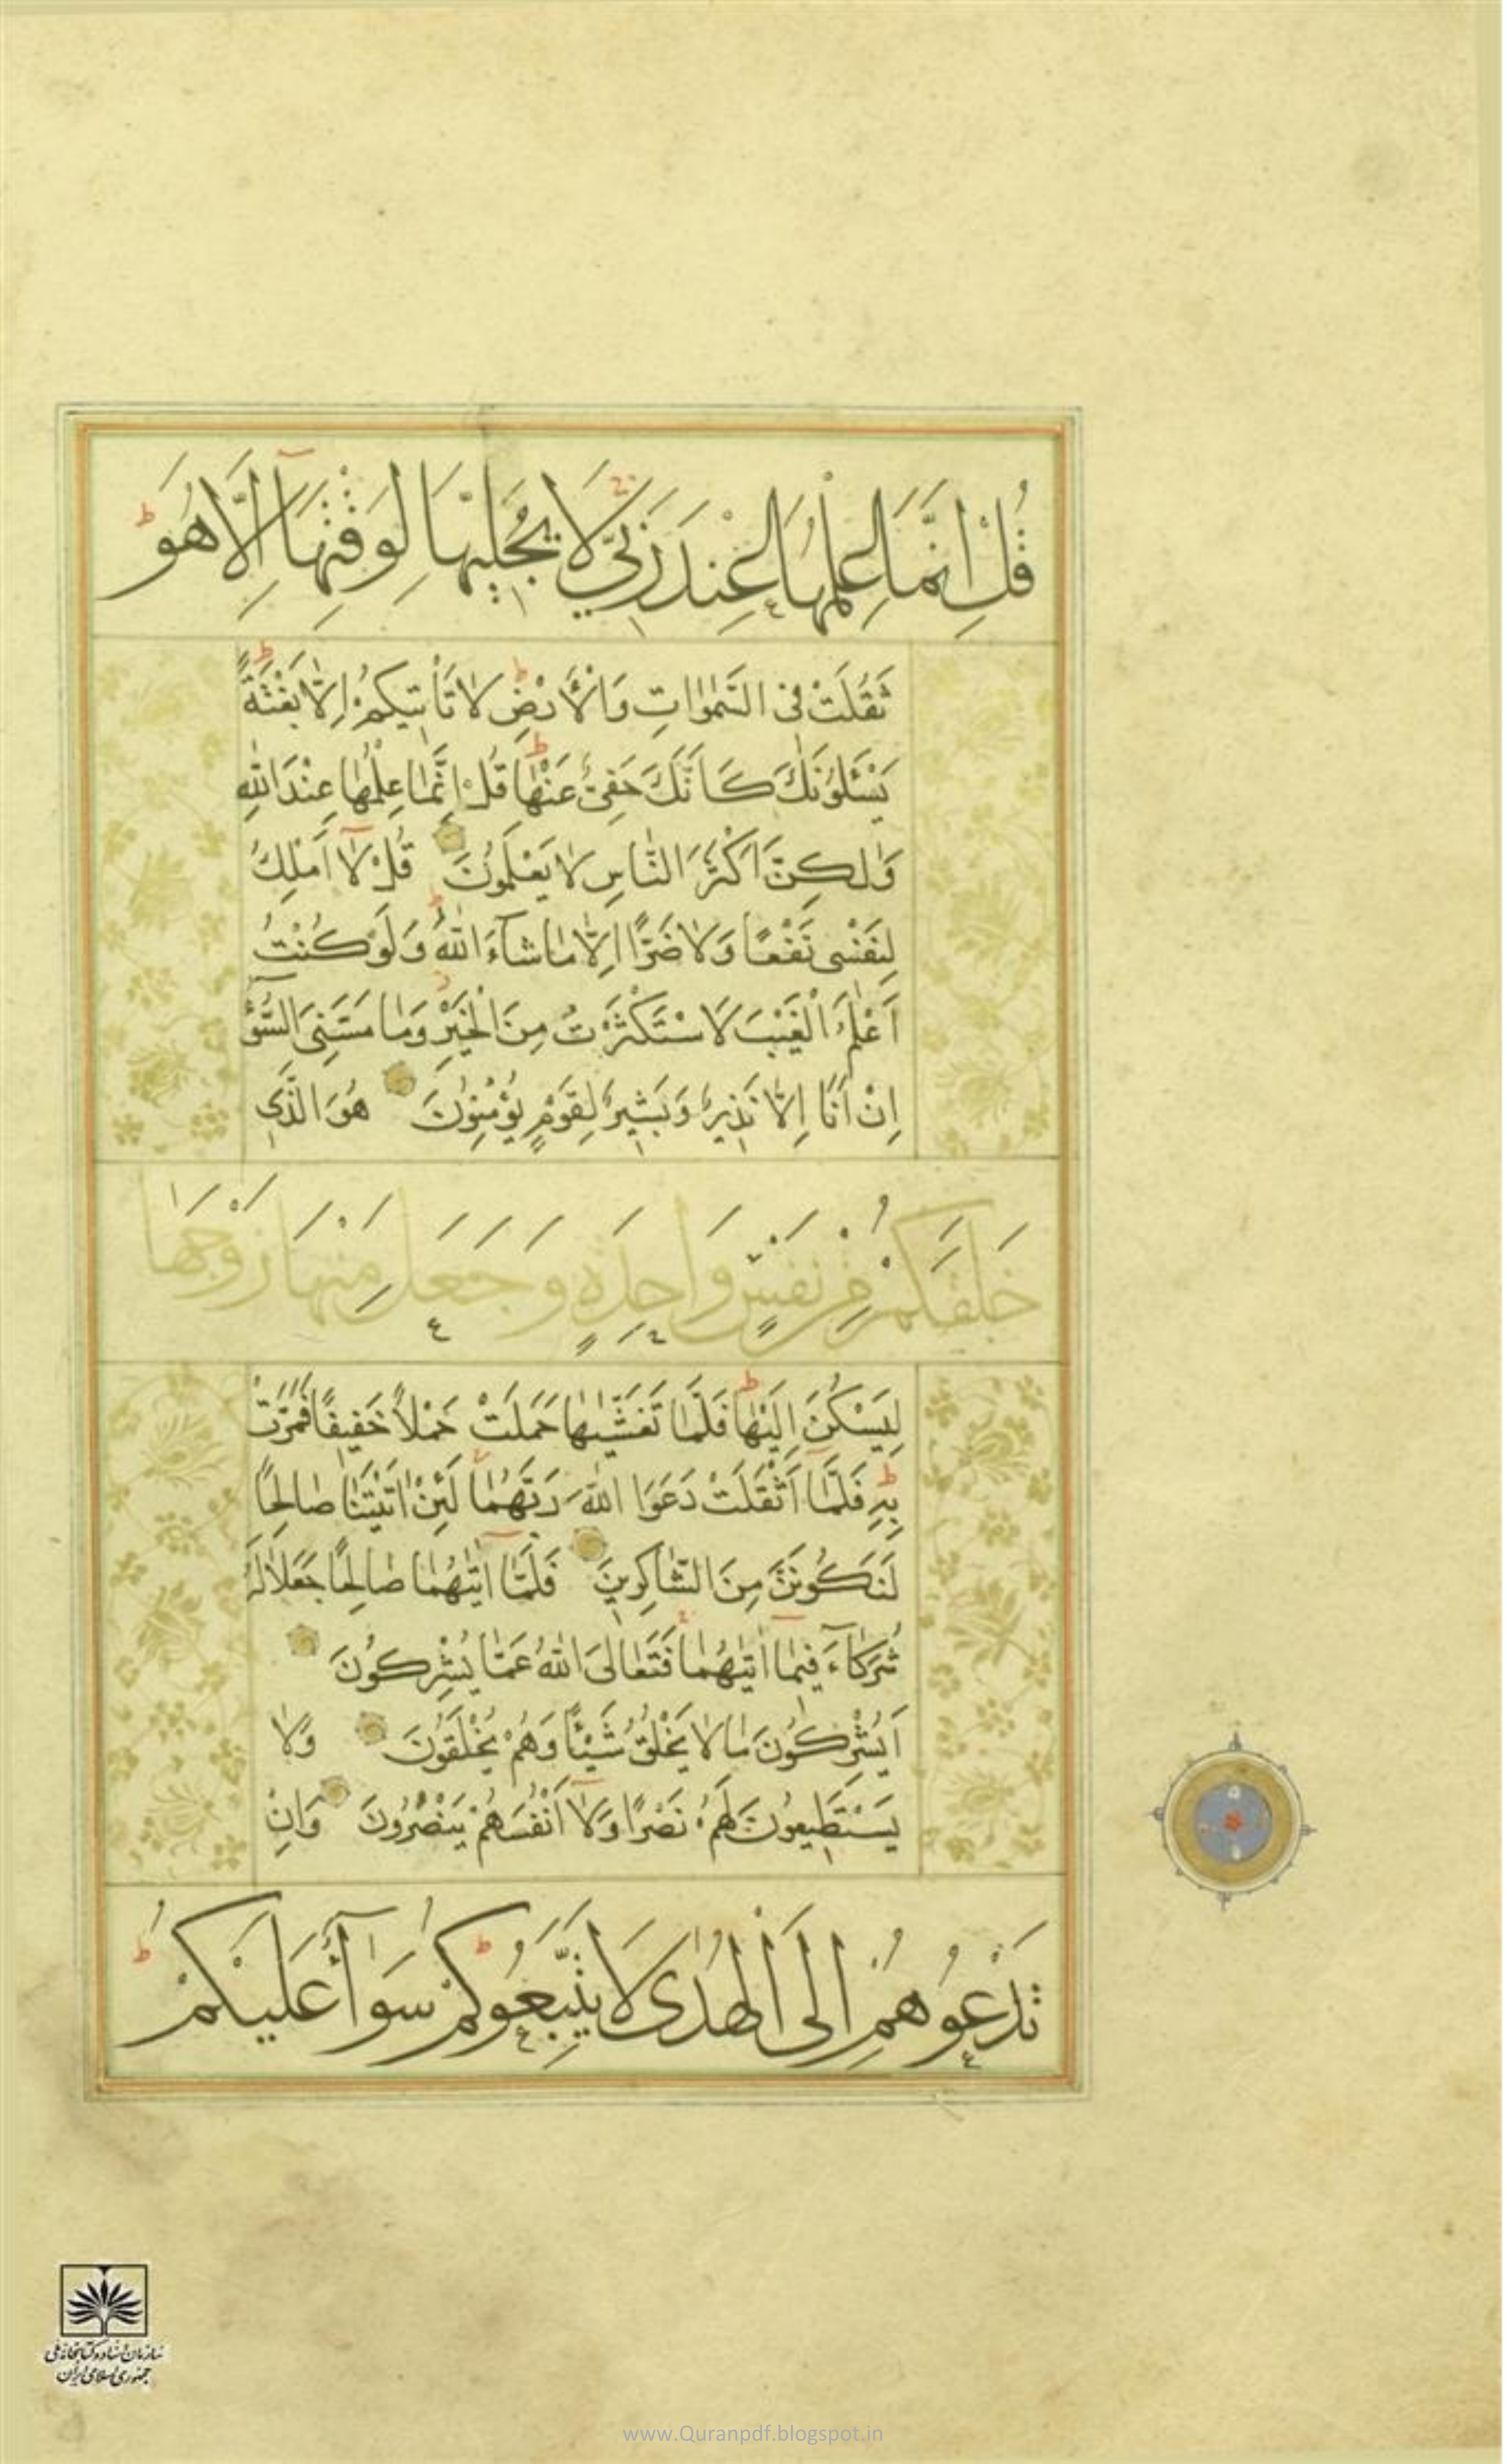 قُلْ اِنَّمَا عِلْمُهَا عِنْدَ رَبِّي لَا يُجَلِّيهَا لِوَقْتِهَآ اِلَّا هُوَ ط
ثَقُلَتْ فِى السَّمٰوَاتِ وَالْاَرْضِ ط لَا تَأْتِيكُمْ اِلَّا بَغْتَةً ط
يَسْئَلُونَكَ كَاَنَّكَ حَفِىٌّ عَنْهَا ط قُلْ اِنَّمَا عِلْمُهَا عِنْدَ اللّٰهِ
وَلٰكِنَّ اَكْثَرَ النَّاسِ لَا يَعْلَمُونَ قُلْ لَآ اَمْلِكُ
لِنَفْسِى نَفْعًا وَلَا ضَرًّا اِلَّا مَا شَآءَ اللّٰهُ ط وَلَوْ كُنْتُ
اَعْلَمُ الْغَيْبَ لَاسْتَكْثَرْتُ مِنَ الْخَيْرِ وَمَا مَسَّنِىَ السُّوٓءُ
اِنْ اَنَا اِلَّا نَذِيرٌ وَبَشِيرٌ لِقَوْمٍ يُؤْمِنُونَ هُوَ الَّذِى
خَلَقَكُمْ مِنْ نَفْسٍ وَاحِدَةٍ وَجَعَلَ مِنْهَا زَوْجَهَا
لِيَسْكُنَ اِلَيْهَا ط فَلَمَّا تَغَشّٰيهَا حَمَلَتْ حَمْلًا خَفِيفًا فَمَرَّتْ
بِهِ ط فَلَمَّآ اَثْقَلَتْ دَعَوَا اللّٰهَ رَبَّهُمَا لَئِنْ اٰتَيْتَنَا صَالِحًا
لَنَكُونَنَّ مِنَ الشَّاكِرِينَ فَلَمَّآ اٰتٰيهُمَا صَالِحًا جَعَلَا لَهُ
شُرَكَآءَ فِيمَآ اٰتٰيهُمَا فَتَعَالَى اللّٰهُ عَمَّا يُشْرِكُونَ
اَيُشْرِكُونَ مَا لَا يَخْلُقُ شَيْئًا وَهُمْ يُخْلَقُونَ وَلَا
يَسْتَطِيعُونَ لَهُمْ نَصْرًا وَلَآ اَنْفُسَهُمْ يَنْصُرُونَ وَاِنْ
تَدْعُوهُمْ اِلَى الْهُدٰى لَا يَتَّبِعُوكُمْ ط سَوَآءٌ عَلَيْكُمْ ط
سازمان اسناد و کتابخانه ملی
جمهوری اسلامی ایران
www.Quranpdf.blogspot.in